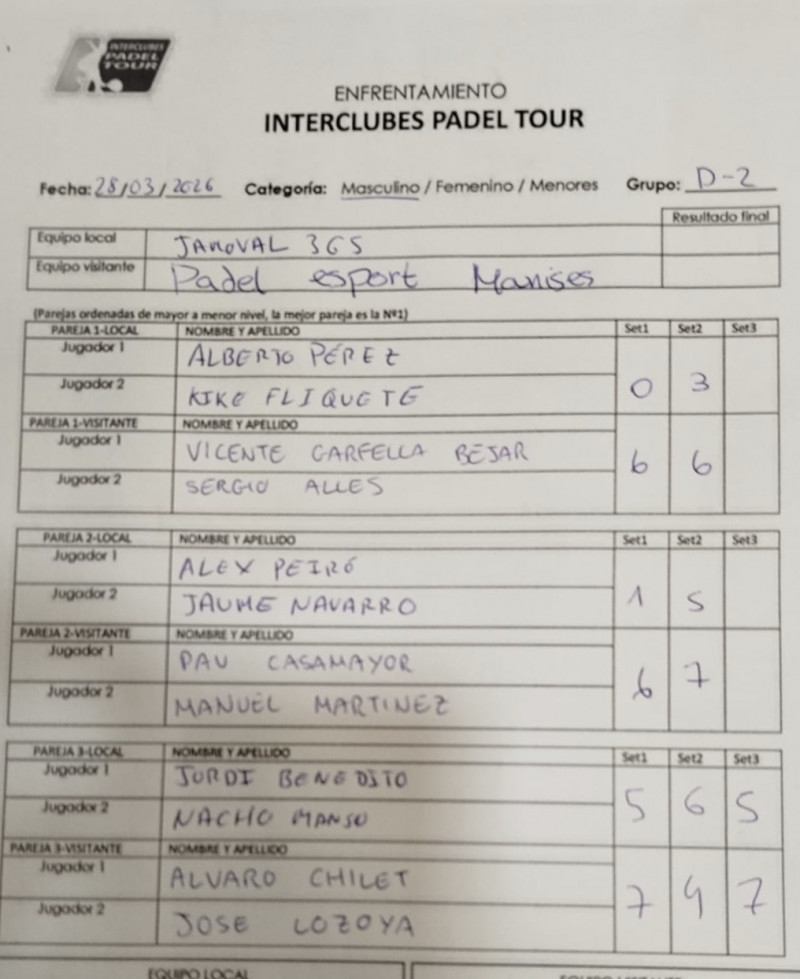 INTERCLUBES
PADEL
TOUR
ENFRENTAMIENTO
INTERCLUBES PADEL TOUR
Fecha: 28/03/2026 Categoría: Masculino / Femenino / Menores Grupo: D-2
Resultado final
Equipo local JANOVAL 365
Equipo visitante Padel esport Manises
(Parejas ordenadas de mayor a menor nivel, la mejor pareja es la Nº1)
PAREJA 1-LOCAL NOMBRE Y APELLIDO Set1 Set2 Set3
Jugador 1 ALBERTO PÉREZ
Jugador 2 KIKE FLIQUETE 0 3
PAREJA 1-VISITANTE NOMBRE Y APELLIDO
Jugador 1 VICENTE GARFELLA BEJAR 6 6
Jugador 2 SERGIO ALLES
PAREJA 2-LOCAL NOMBRE Y APELLIDO Set1 Set2 Set3
Jugador 1 ALEX PEIRÓ
Jugador 2 JAUME NAVARRO 1 5
PAREJA 2-VISITANTE NOMBRE Y APELLIDO
Jugador 1 PAU CASAMAYOR 6 7
Jugador 2 MANUEL MARTINEZ
PAREJA 3-LOCAL NOMBRE Y APELLIDO Set1 Set2 Set3
Jugador 1 JORDI BENEDITO
Jugador 2 NACHO MANSO 5 6 5
PAREJA 3-VISITANTE NOMBRE Y APELLIDO
Jugador 1 ALVARO CHILET 7 4 7
Jugador 2 JOSE LOZOYA
EQUIPO LOCAL EQUIPO VISITANTE